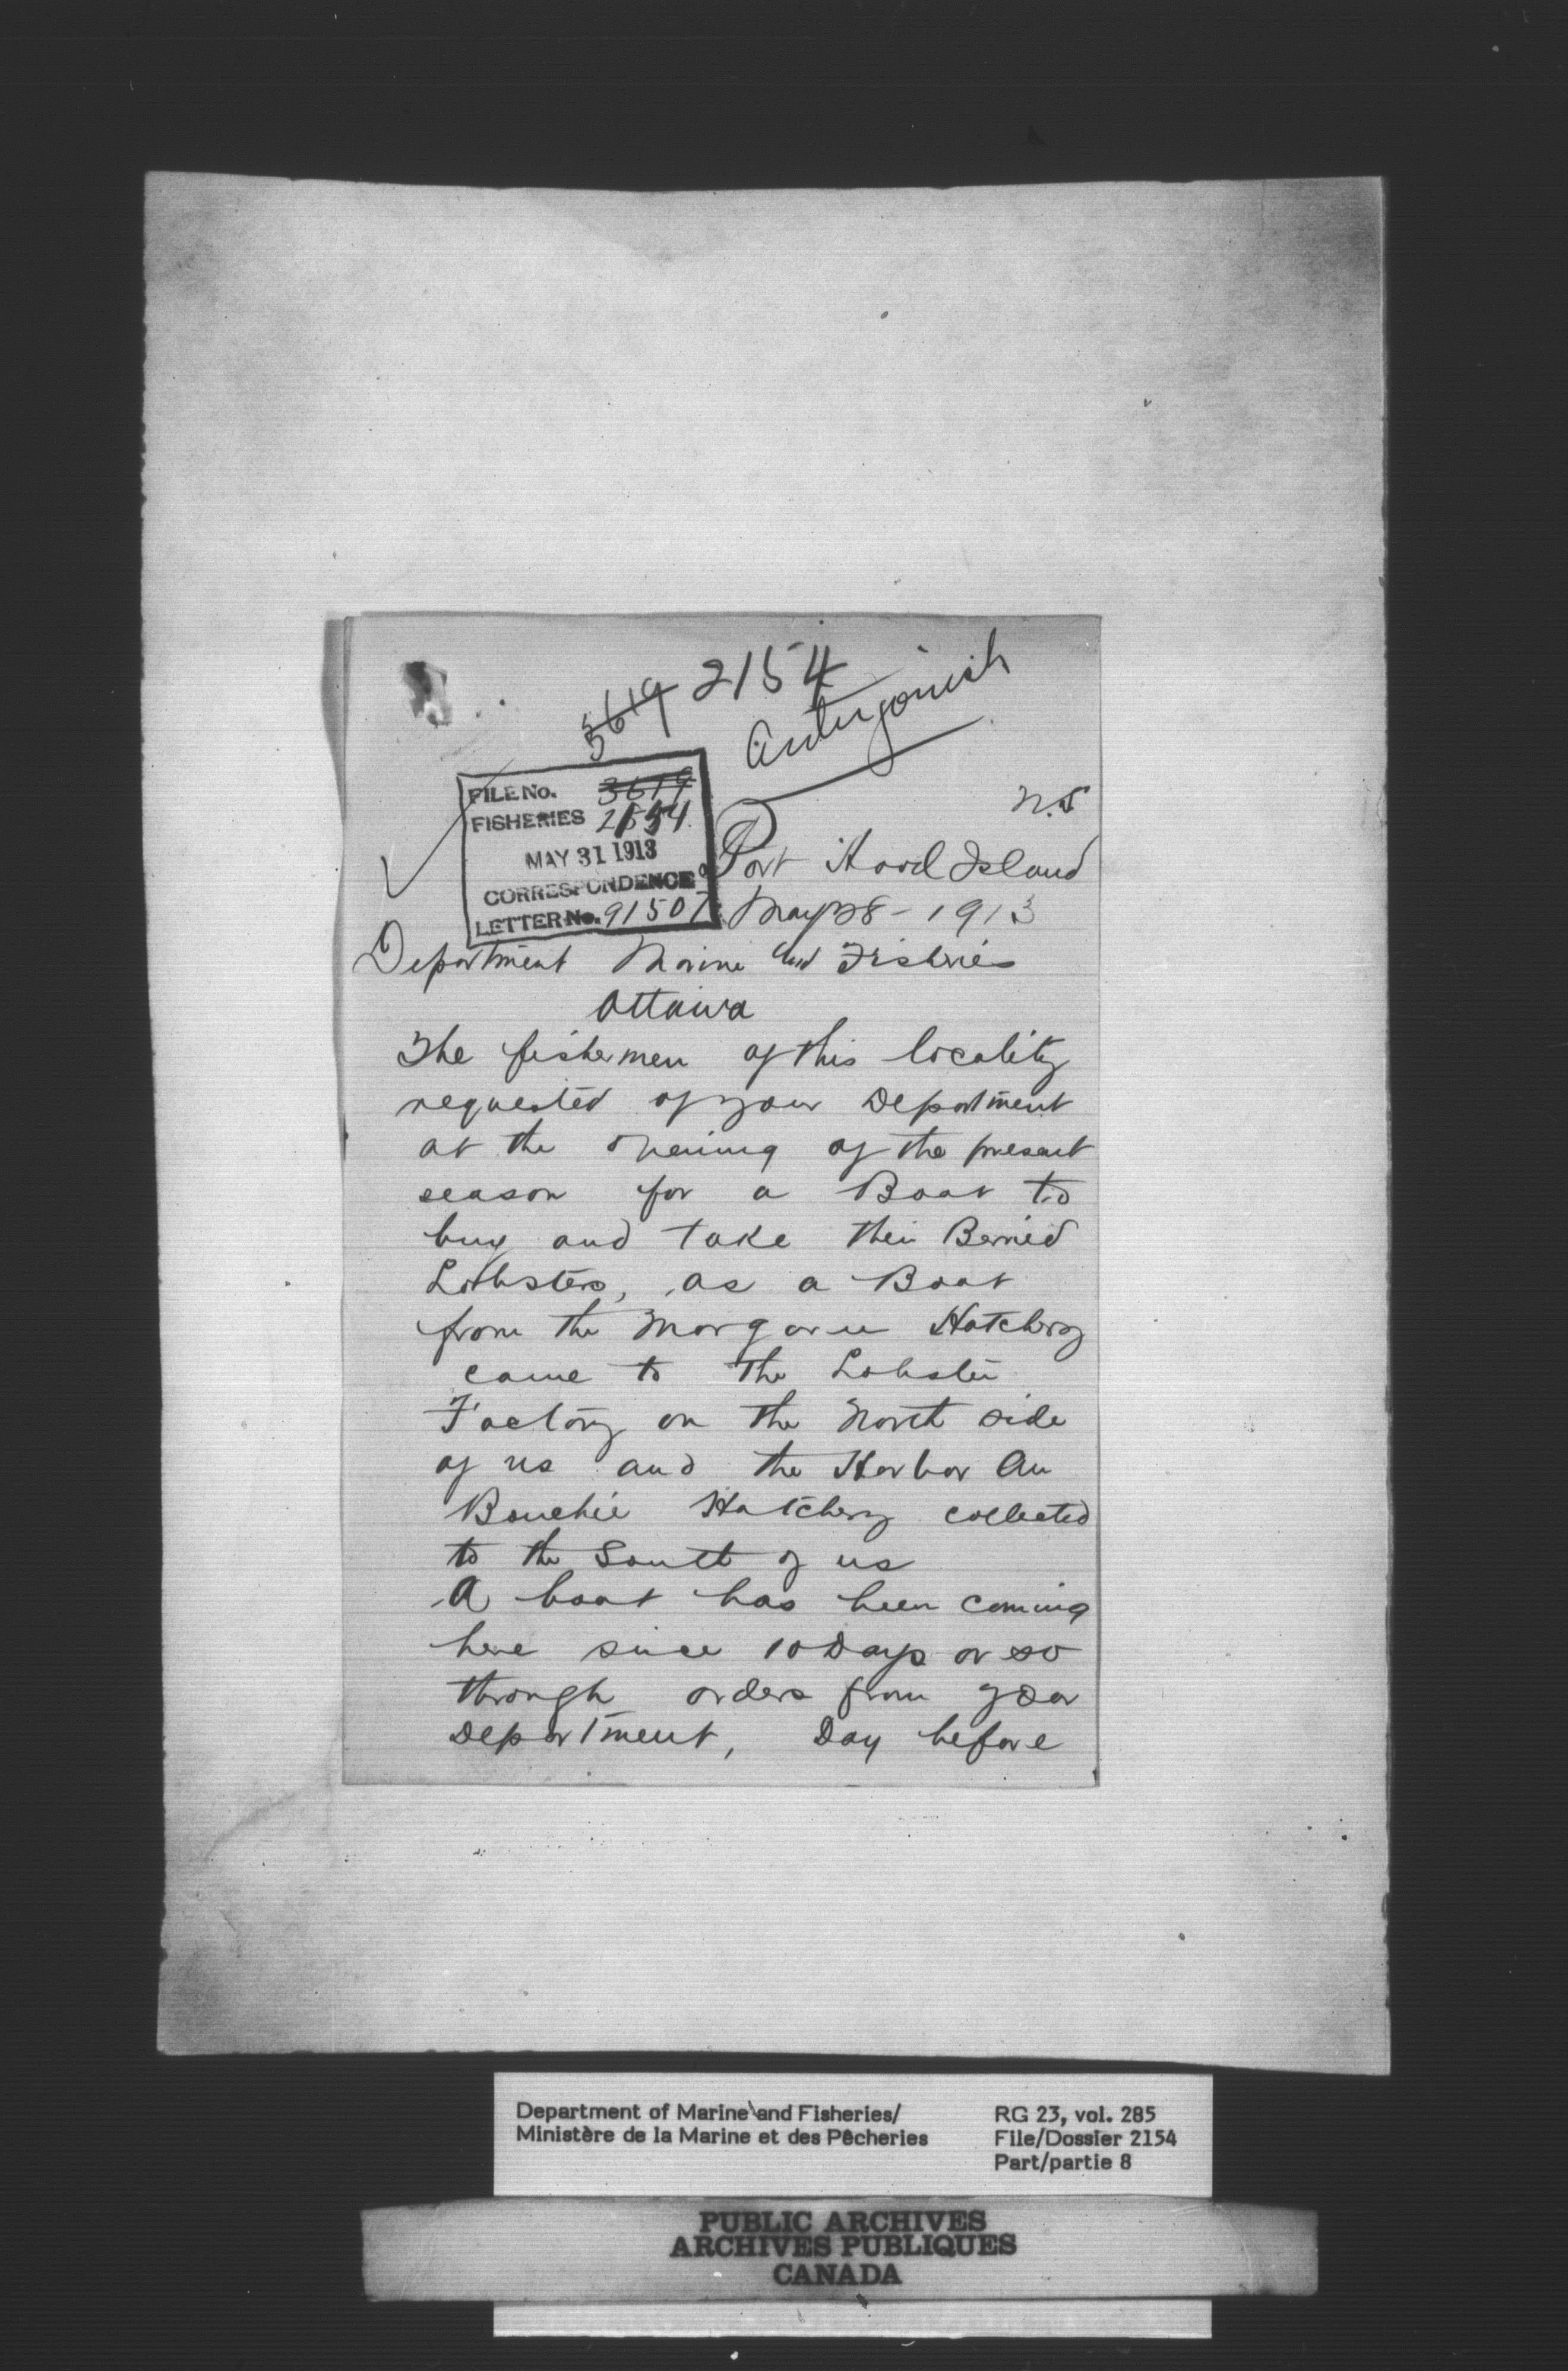 3619 2154
Antigonish
FILE No. 3619
FISHERIES 2154
MAY 31 1913
CORRESPONDENCE
LETTER No. 91507
N.S
Port Hood Island
May 28 - 1913
Department Marine and Fisheries
Ottawa
The fishermen of this locality
requested of your Department
at the opening of the present
season for a Boat to
buy and take their Berried
Lobsters, as a Boat
from the Margaree Hatchery
came to the Lobster
Factory on the North side
of us and the Harbor Au
Bouchie Hatchery collected
to the South of us
A boat has been coming
here since 10 Days or so
through orders from your
Department, Day before
Department of Marine and Fisheries/
Ministère de la Marine et des Pêcheries
RG 23, vol. 285
File/Dossier 2154
Part/partie 8
PUBLIC ARCHIVES
ARCHIVES PUBLIQUES
CANADA